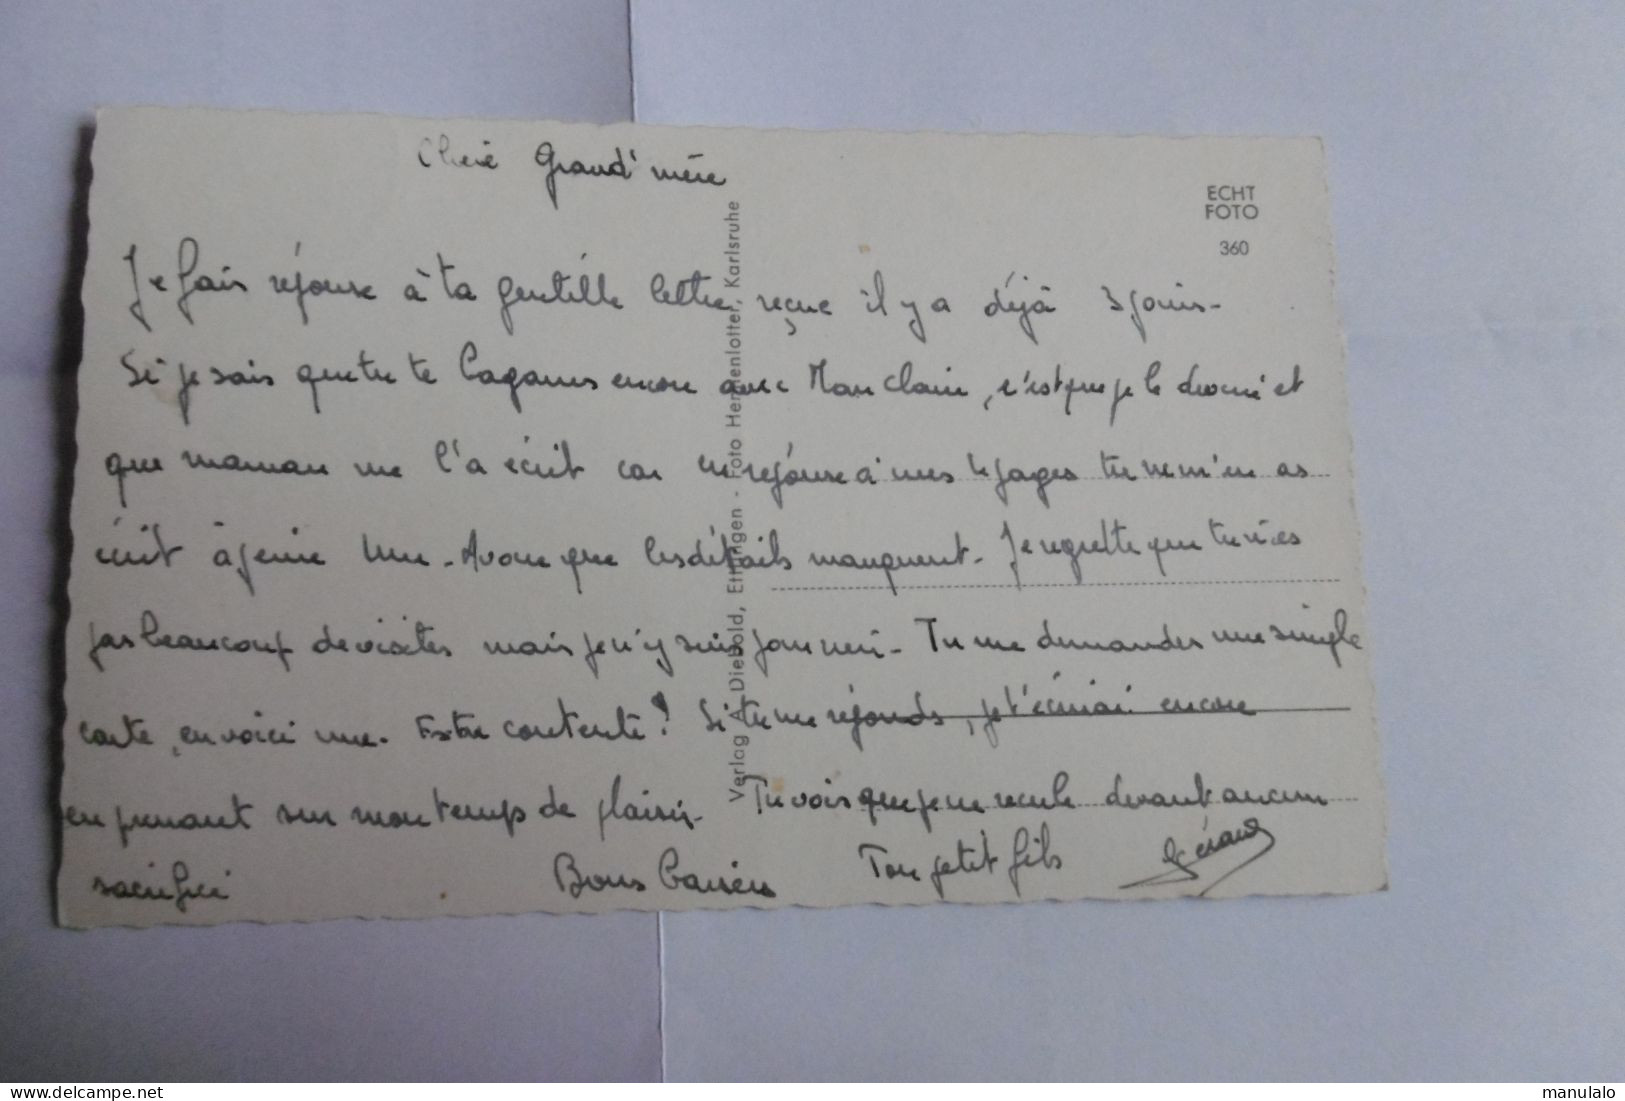 Chère Grand'mère
ECHT
FOTO
360
Je fais réponse à ta gentille lettre, reçue il y a déjà 3 jours-
Si je sais que tu te bagarres encore avec Man Claire, c'est que je le devine et
que maman me l'a écrit car en réponse à mes 4 pages tu ne m'en as
écrit à peine une. Avoue que les détails manquent. Je regrette que tu n'ies
pas beaucoup de visites mais je n'y suis pour rien. Tu me demandes une simple
carte, en voici une. Es tu contente? Si tu me réponds, je t'écrirai encore
en prenant sur mon temps de plaisir. Tu vois que je ne recule devant aucun
sacrifice
Bons baisers
Ton petit fils
Gérard
Verlag Diebold, Ettlingen - Foto Herrenlotter, Karlsruhe
manulalo